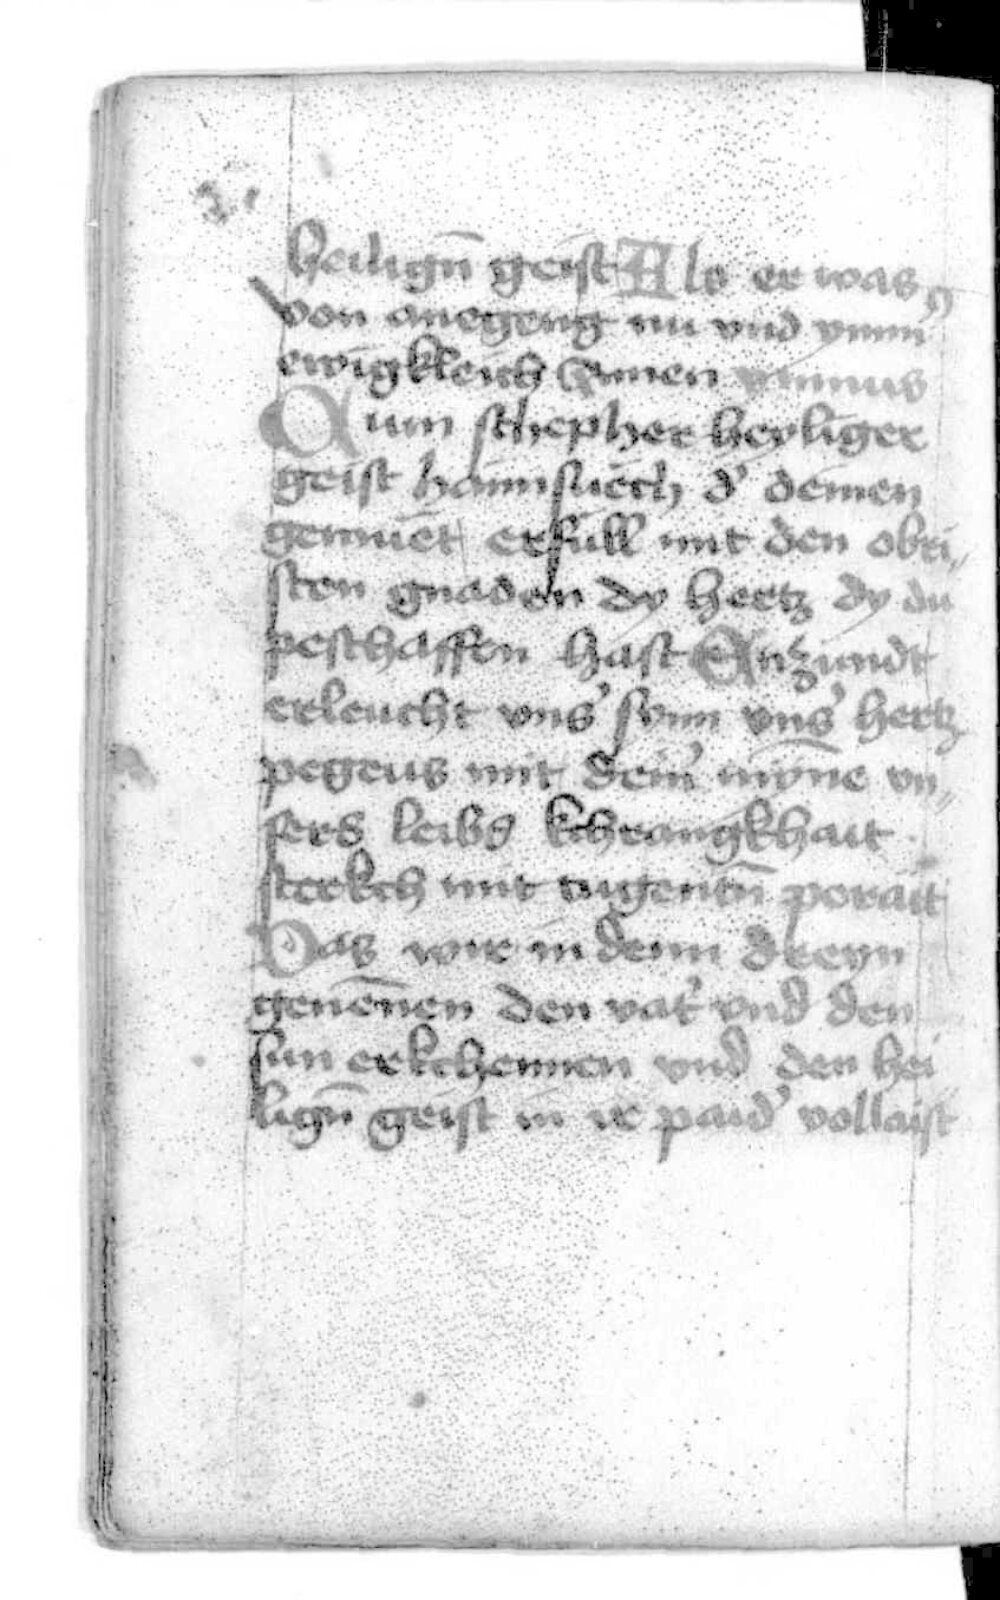 heilign̄ geist Als er was
von anegeng nu vnd ymm̄
ewigkleich Amen ympnus
Kum schepher heyliger
geist haimsuech d' deinen
gemuet erfull mit den obri„
sten gnaden dy hertz dy du
peschaffen hast Antzundt
erleucht vns' synn vns' hertz
pegeus mit dein' mynne vn„
sers leibs kchrangkhait
sterkch mit tugentn̄ porait
Das wir in deim dreyn
genēnen den vat' vnd den
sun erkchennen vnd den hei
lign̄ geist in ir paid' vollaist